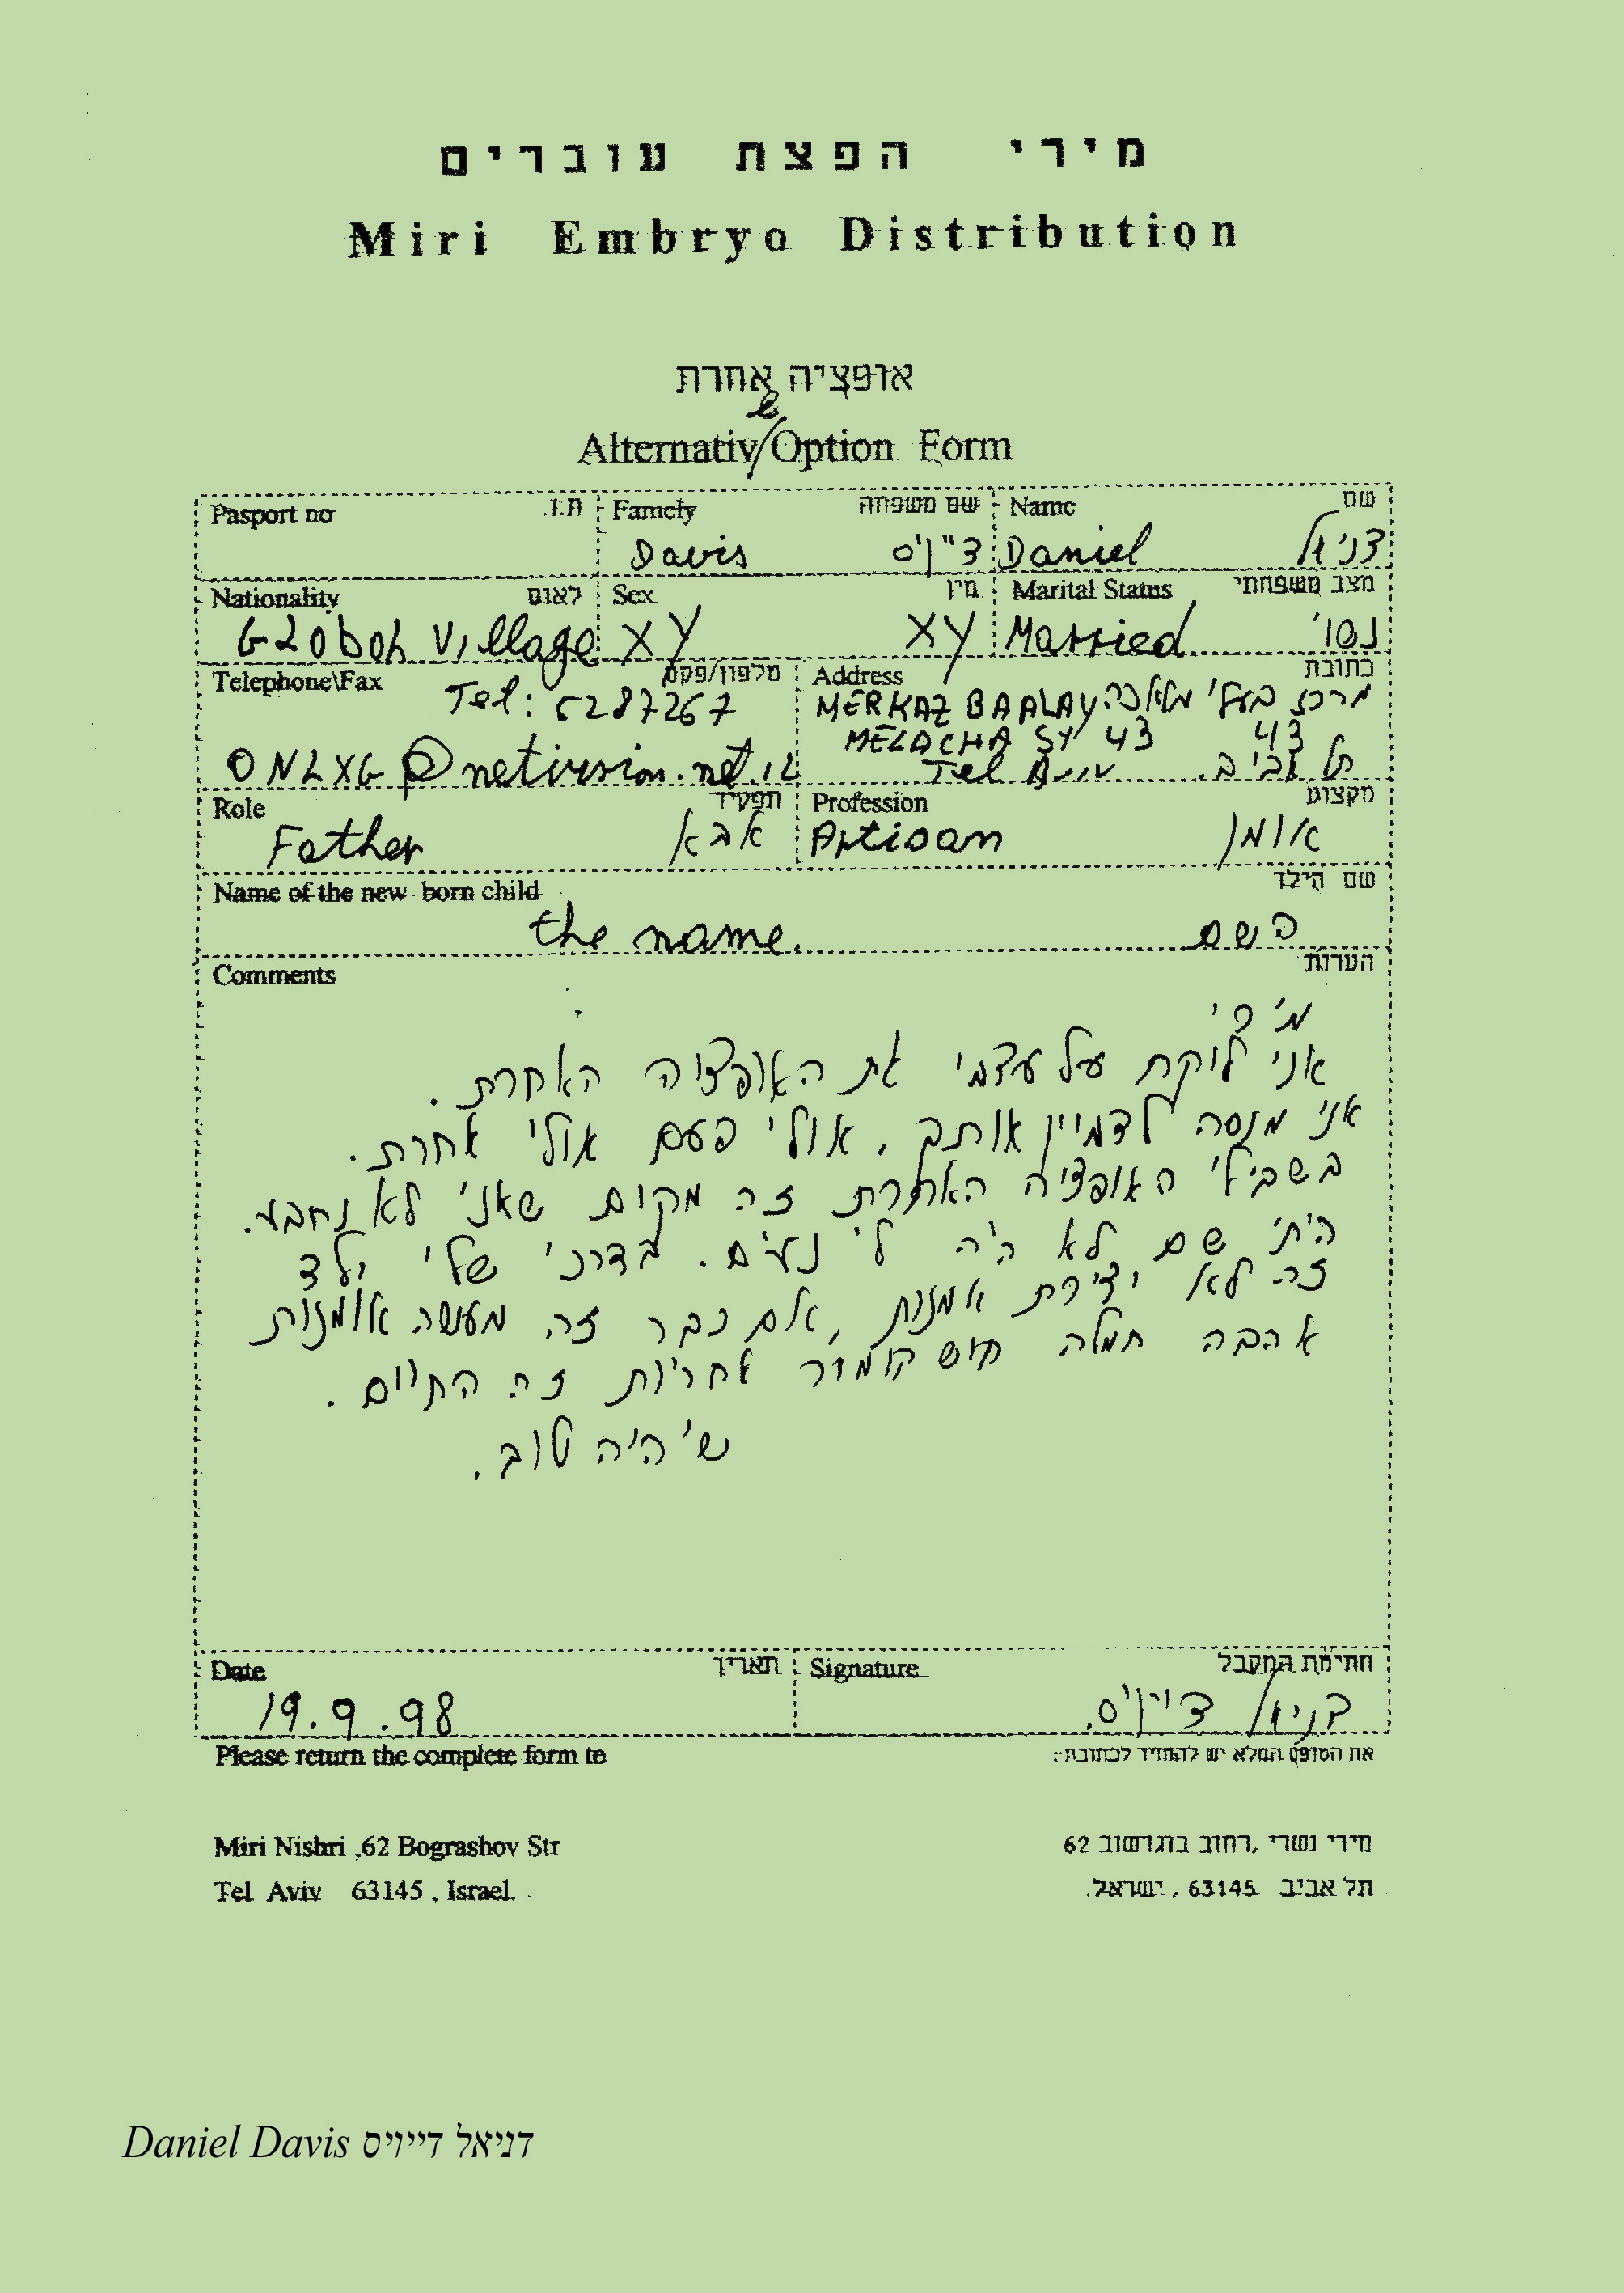 מירי הפצת עוברים
Miri Embryo Distribution
אופציה אחרת
e
Alternativ/Option Form
Pasport no ת.ז. Famely שם משפחה Name שם
Davis דייויס Daniel דניאל
Nationality לאום Sex מין Marital Status מצב משפחתי
Village XY XY Married נשוי
Telephone\Fax טלפון/פקס Address כתובת
Tel: 5287267 MERKAZ BAALAY מרכז בעלי מלאכה
MELACHA ST 43 43
ONLXG@netvision.net.il Tel Aviv תל אביב.
Role תפקיד Profession מקצוע
Father אבא Artisan אומן
Name of the new born child שם הילד
the name. השם
Comments הערות
מירי
אני לוקח על עצמי את האופציה האחרת.
אני מנסה לדמיין אותך, אולי פעם אולי אחרת.
בשבילי האופציה האחרת זה מקום שאני לא נחבע.
הייתי שם לא היה לי נעים. בדרכי שלי ילד
זה לא יצירת אמנות, אם כבר זה מעשה אומנות
אהבה חמלה חוש הומור אחריות זה החיים.
שיהיה טוב.
Date תאריך Signature חתימת המקבל
19.9.98 דניאל דייויס.
Please return the complete form to את הטופס המלא יש להחזיר לכתובת:
Miri Nishri ,62 Bograshov Str מירי נשרי, רחוב בוגרשוב 62
Tel Aviv 63145, Israel. תל אביב 63145, ישראל.
Daniel Davis דניאל דייויס